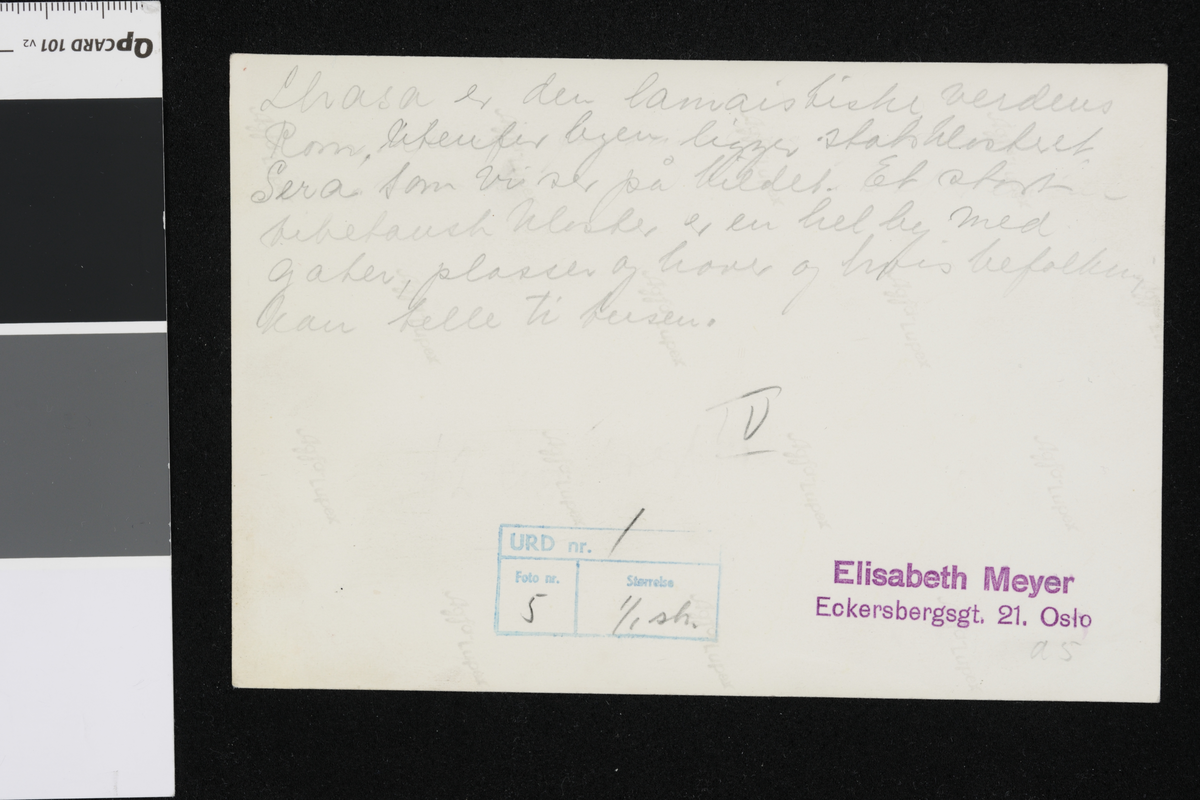 Lhasa er den lamaistiske verdens
Rom. Utenfor byen ligger statsklosteret
Sera som vi ser på bildet. Et stort
tibetansk kloster er en hel by med
gater, plasser og haver og hvis befolkning
kan telle ti tusen.
IV
URD nr. 1
Foto nr. Størrelse
5 1/1 sh.
Elisabeth Meyer
Eckersbergsgt. 21. Oslo
a 5
QPCARD 101 v2